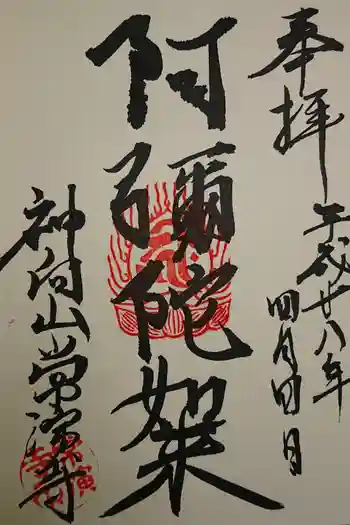 奉拝
平成廿八年
四月四日
阿彌陀如来
神向山常演寺